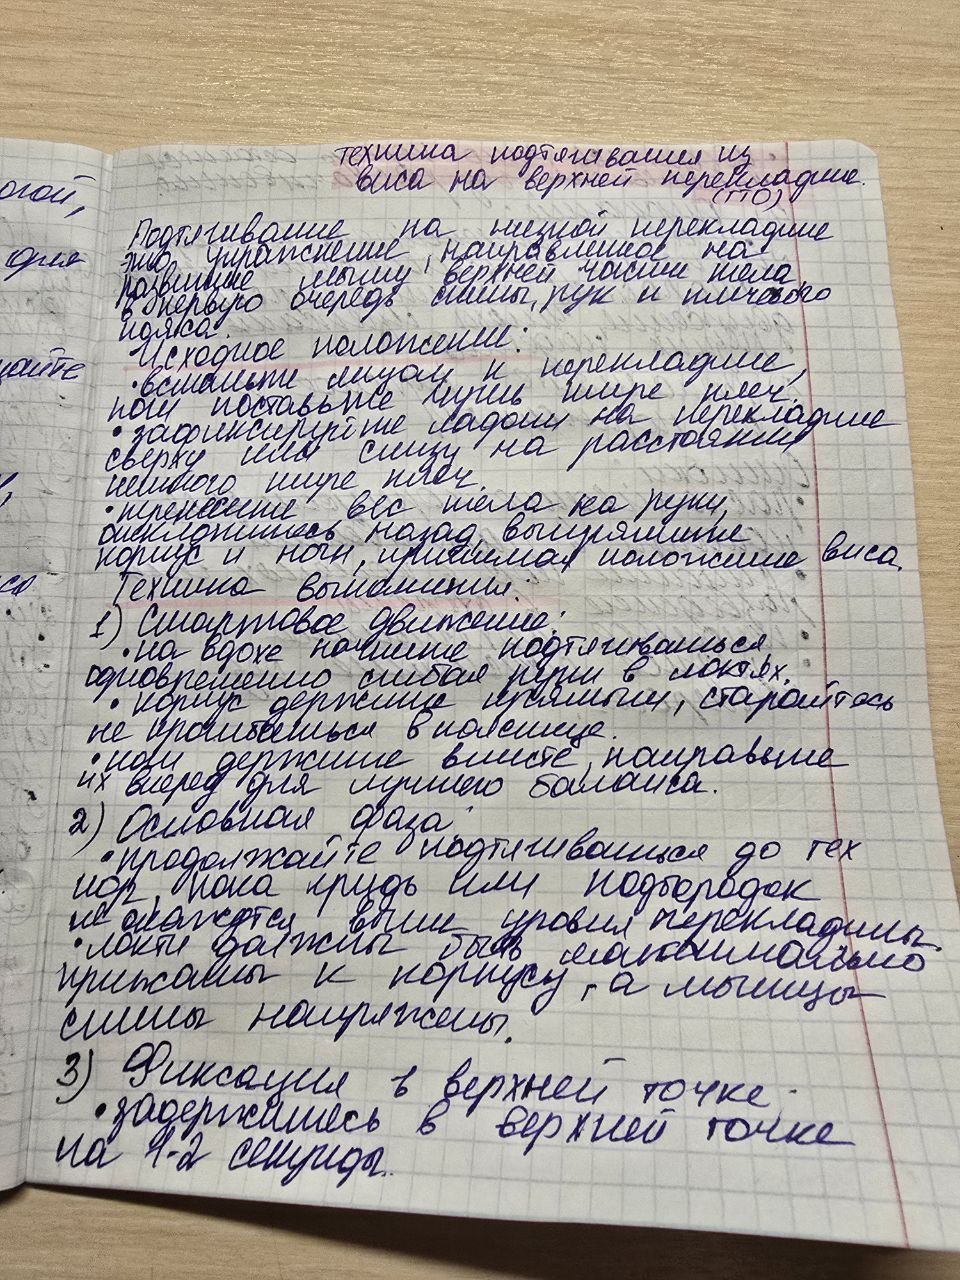 огой,
для
щайте
са
техника подтягивания из
виса на верхней перекладине.
(ГТО)
Подтягивание на низкой перекладине
это упражнение, направленное на
развитие мышц верхней части тела
в первую очередь спины, рук и плечевого
пояса.
Исходное положение:
• встаньте лицом к перекладине,
ноги поставьте чуть шире плеч.
• зафиксируйте ладони на перекладине
сверху или снизу на расстоянии
немного шире плеч.
• перенесите вес тела на руки,
отклонившись назад, выпрямите
корпус и ноги, принимая положение виса.
Техника выполнения:
1) Стартовое движение:
• на вдохе начните подтягиваться,
одновременно сгибая руки в локтях.
• корпус держите прямым, старайтесь
не прогибаться в пояснице.
• ноги держите вместе, направьте
их вперед для лучшего баланса.
2) Основная фаза:
• продолжайте подтягиваться до тех
пор, пока грудь или подбородок
не окажется выше уровня перекладины.
• локти должны быть максимально
прижаты к корпусу, а мышцы
спины напряжены.
3) Фиксация в верхней точке.
• задержитесь в верхней точке
на 1-2 секунды.